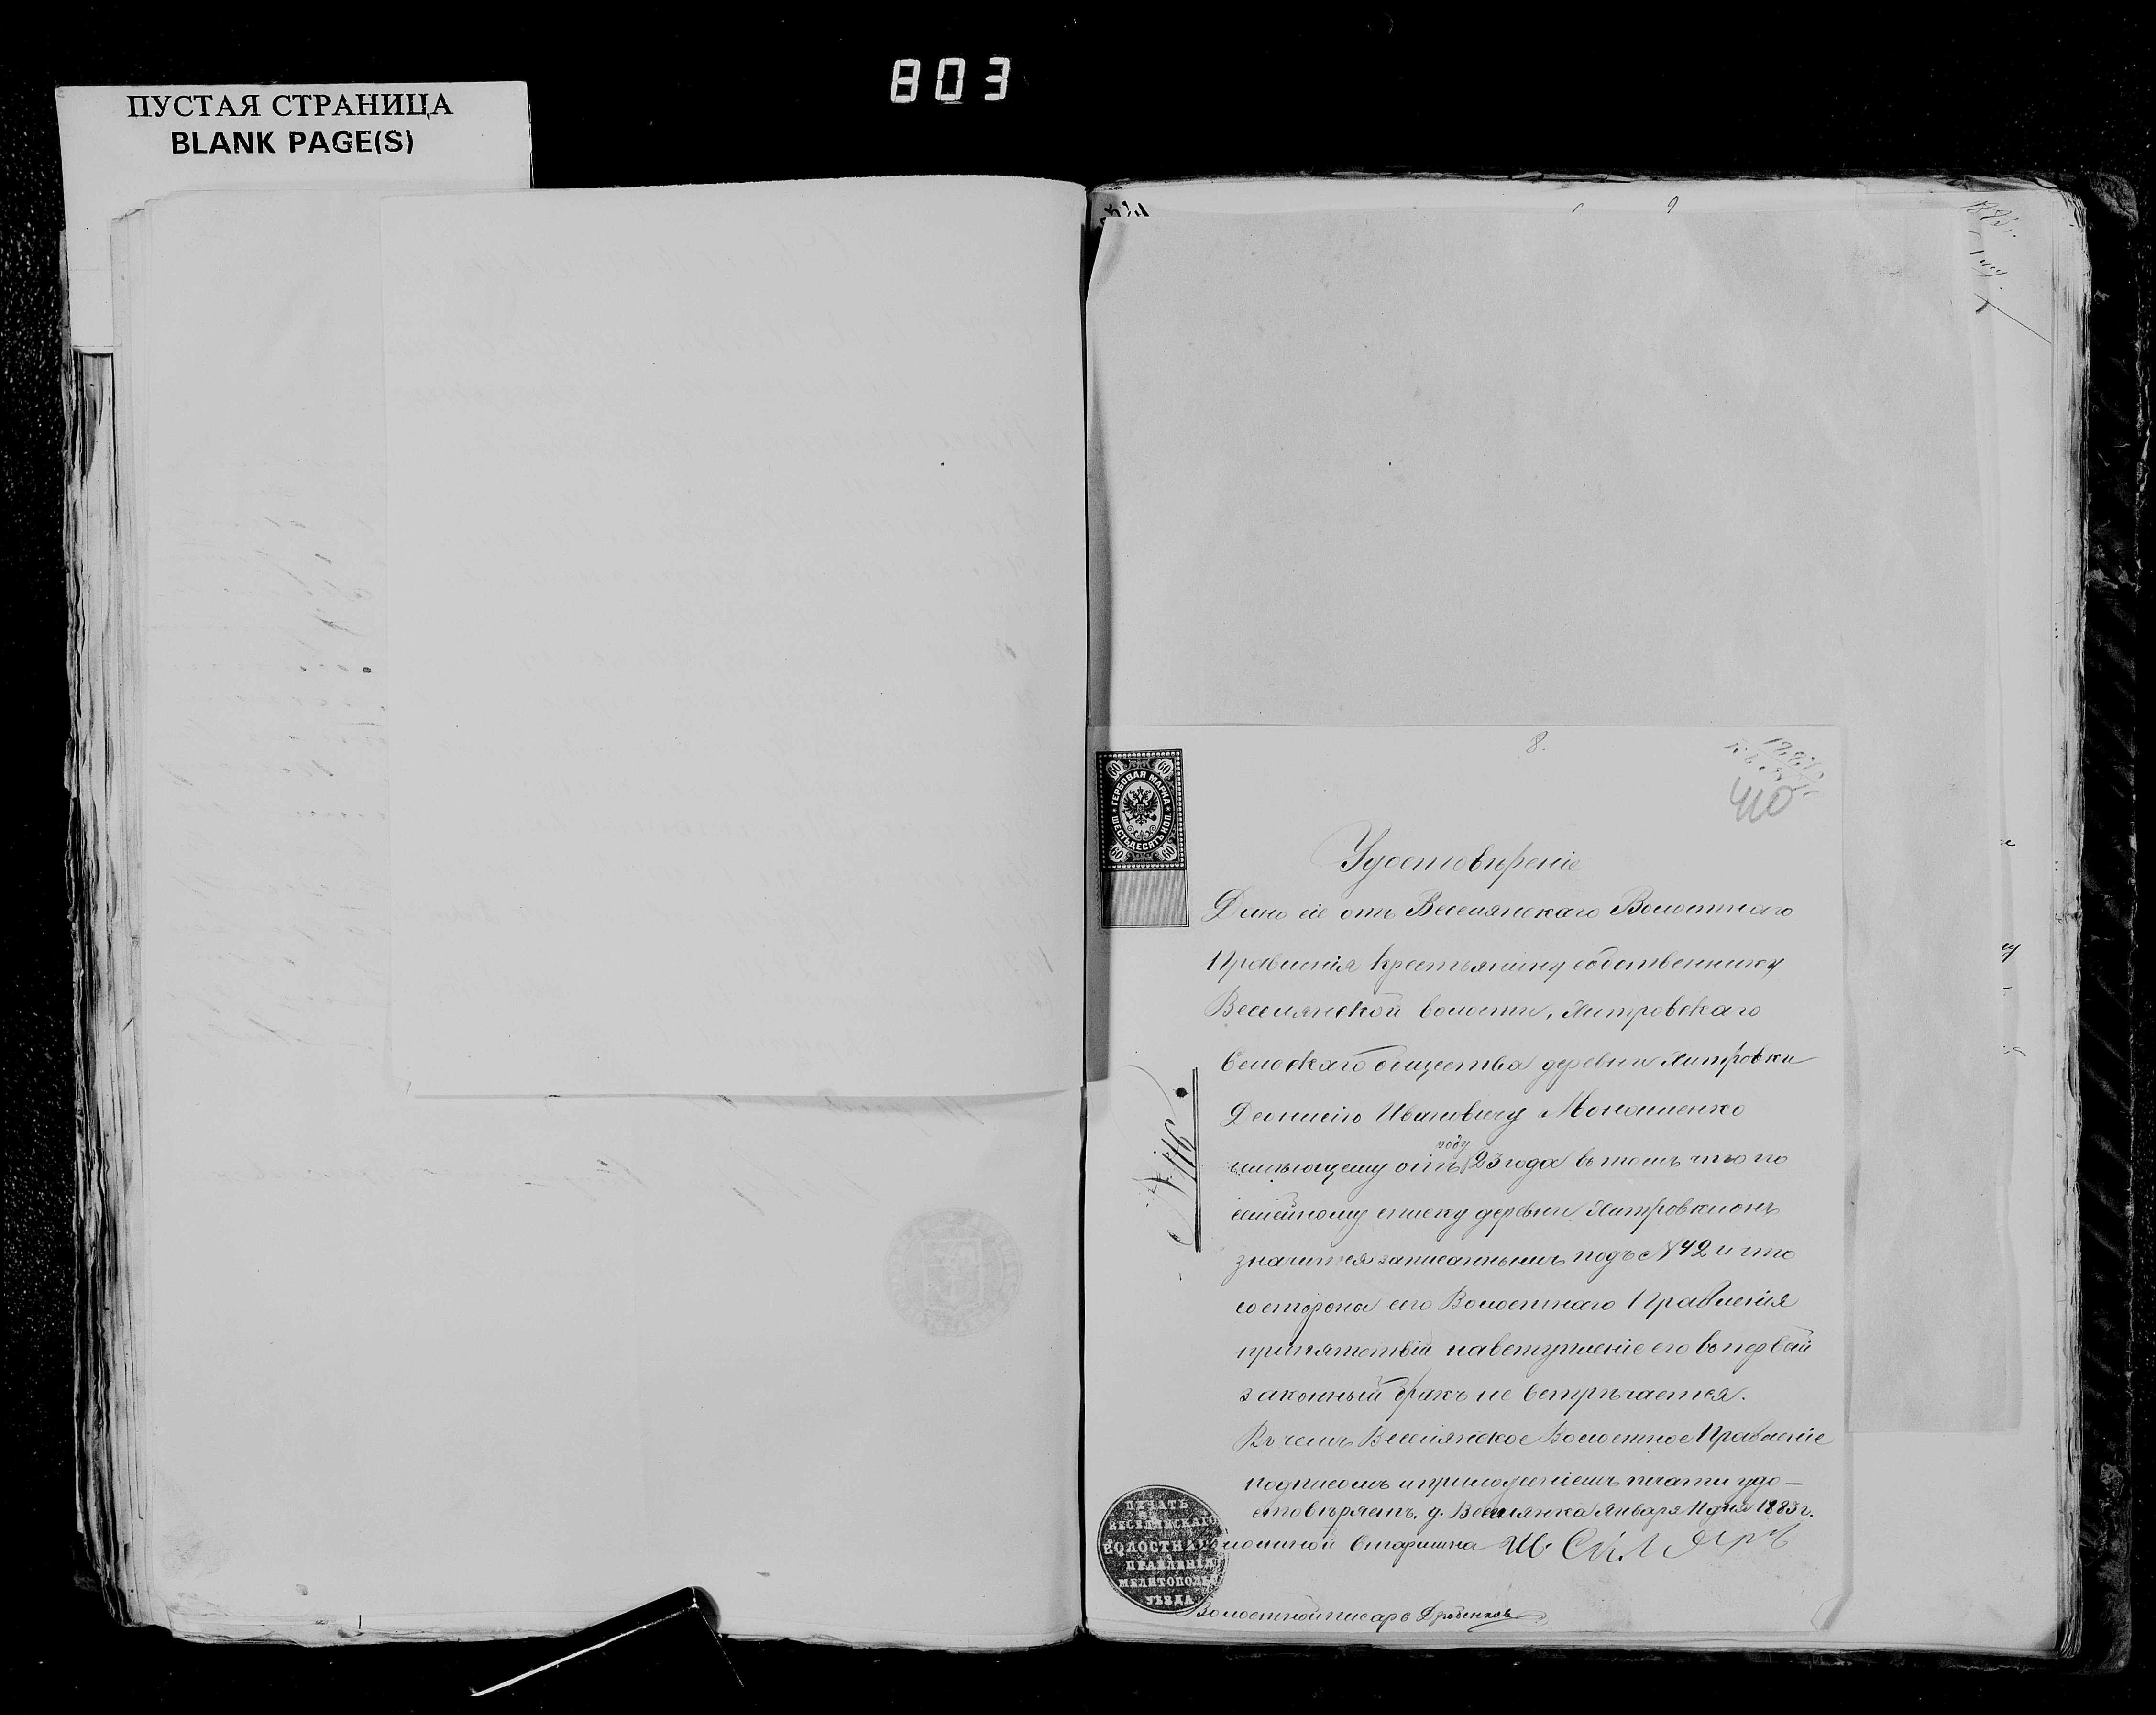 803
ПУСТАЯ СТРАНИЦА
BLANK PAGE(S)
8.
410
ГЕРБОВАЯ МАРКА
ШЕСТЬДЕСЯТЪ КОП.
60 60
60 60
Удостовѣреніе
Дано сіе отъ Веселянскаго Волостнаго
Правленія крестьянину собственнику
Веселянской волости,
Сельскаго общества деревни
Деонисію Ивановичу
имѣющему отъ роду 23 года въ томъ что по
семейному списку деревни онъ
значится записаннымъ подъ № 42 и что
со стороны его Волостнаго Правленія
припятствій на вступленіе его во первый
законный бракъ не встрѣчается.
Въ чемъ Веселянское Волостное Правленіе
подписомъ и приложеніемъ печати удо-
стовѣряетъ. д. Веселянка Января 11 дня 1883 г.
Волостной Старшина
Волостной писарь
№ 116
ПЕЧАТЬ
ВЕСЕЛЯНСКАГО
ВОЛОСТНАГО
ПРАВЛЕНІЯ
МЕЛИТОПОЛЬ
УѢЗДА